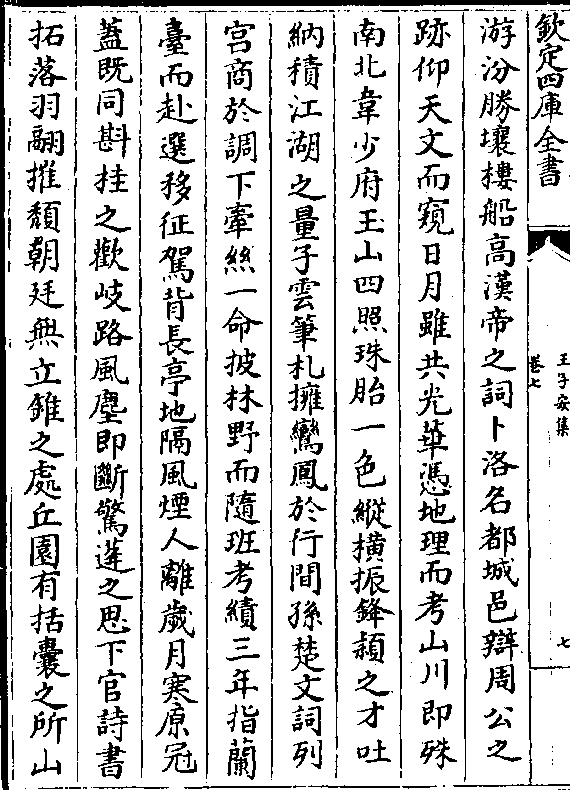 欽定四庫全書
王子安集
卷七
七
游汾勝壤樓船高漢帝之詞卜洛名都城邑辯周公之
跡仰天文而窺日月雖共光華憑地理而考山川即殊
南北韋少府玉山四照珠胎一色縱横振鋒穎之才吐
納積江湖之量子雲筆札擁鸞鳳於行間孫楚文詞列
宫商於調下牽絲一命披林野而隨班考績三年指蘭
臺而赴選移征駕背長亭地隔風煙人離歲月寒原冠
蓋既同斟桂之歡岐路風塵即斷驚蓬之思下官詩書
拓落羽翮摧頽朝廷無立錐之處丘園有括囊之所山